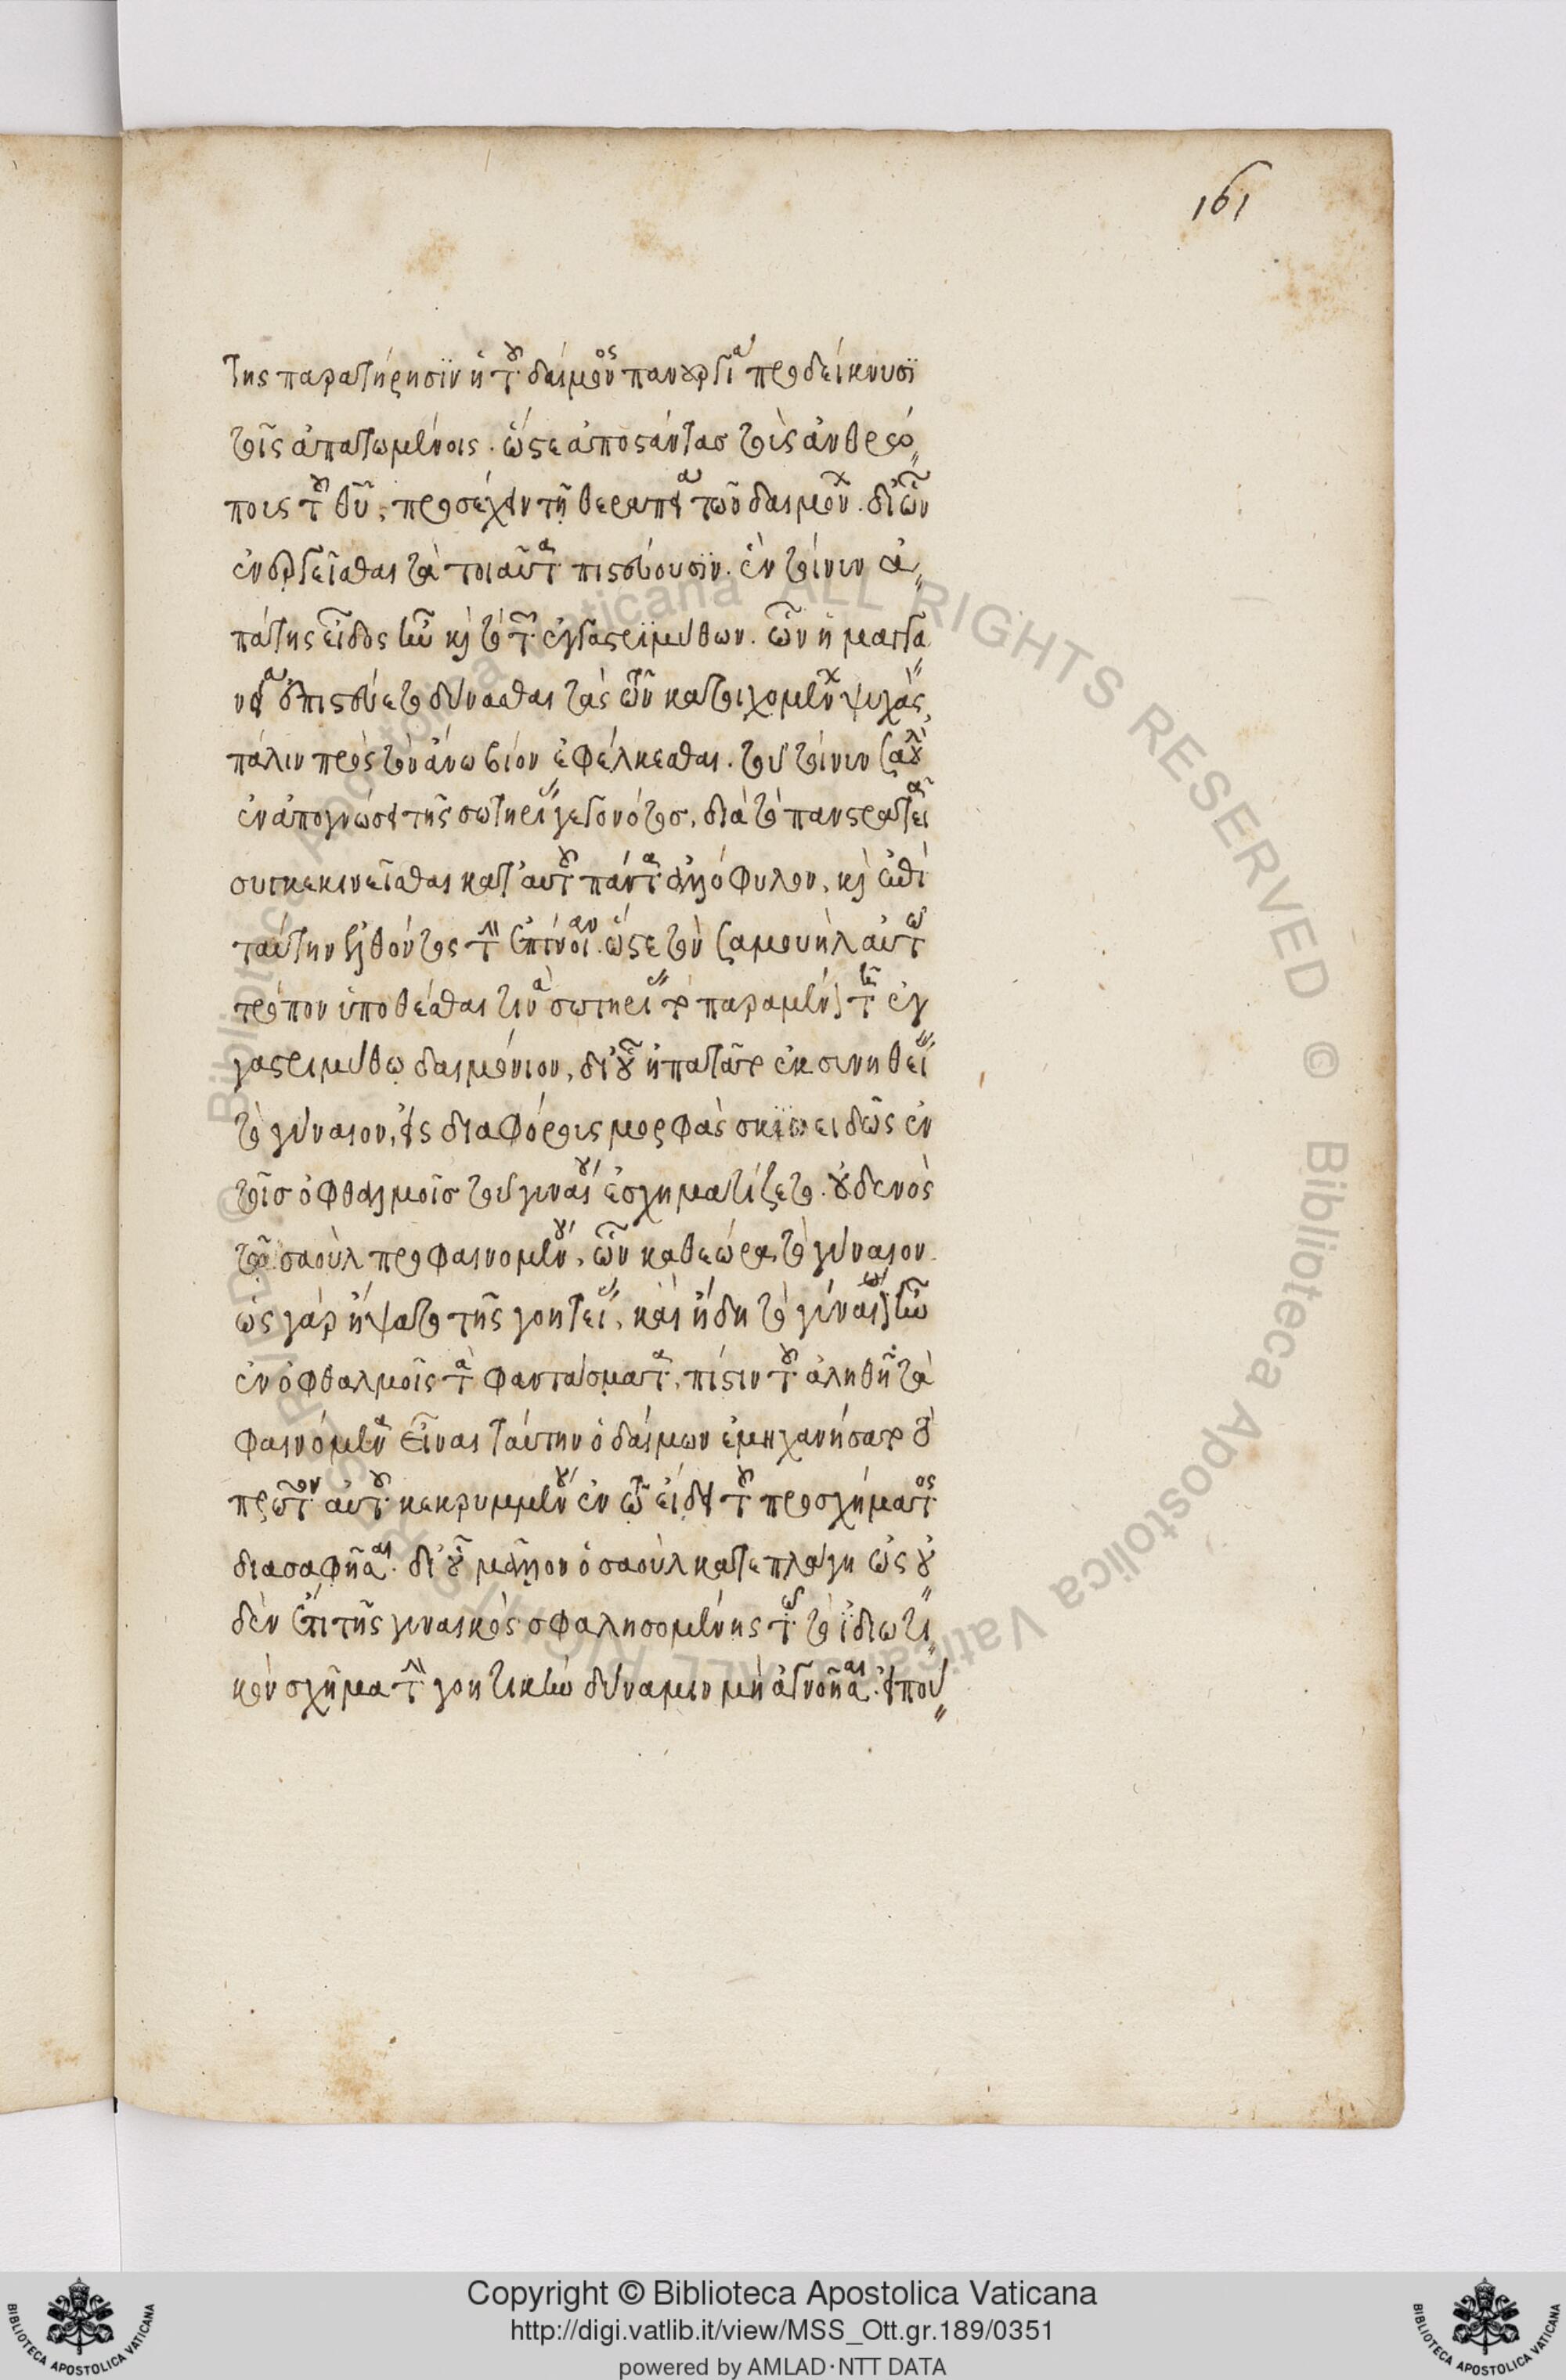 161
της παρατήρησϊν ἡ τοῦ δαίμονος πανουργία προδείκνυσϊ
τοῖς ἀπατωμένοις. ὥστε ἀποστάντας τοὺς ἀνθρώ
ποις τοῦ θῦ, προσέχειν τῇ θεραπεία τῶν δαιμόνων. δι' ὧν
ἐνεργεῖσθαι τὰ τοιαῦτα πιστεύουσϊν. ἐν τοίνυν ἀ
πάτης εἶδος ἦν καὶ τὸ τῶν ἐγγαστρϊμύθων. ὧν ἡ μαγγα
νεία ἐπιστεύετο δύνασθαι τὰς τῶν κατοιχομένων ψυχὰς
πάλιν πρὸς τὸν ἄνω βίον ἐφέλκεσθαι. τοῦ τοίνυν σαοὺλ
ἐν ἀπογνώσει τῆς σωτηρίας γεγονότος, διὰ τὸ πανστρατεὶ
συγκεκινεῖσθαι κατ' αὐτοῦ πάντα ἀλλόφυλον, καὶ ἐπὶ
ταύτην ἐλθόντος τὴν ἐπίνοιαν. ὥστε τὸν σαμουὴλ αὐτῷ
τρόπον ὑποθέσθαι τινὰ σωτηρίας τὸ παραμένον τῇ ἐγ
γαστριμύθῳ δαιμόνιον, δι' οὗ ἠπατᾶτο ἐκ συνηθείας
τὸ γύναιον, εἰς διαφόρους μορφὰς σκϊοειδῶς ἐν
τοῖς ὀφθαλμοῖς τοῦ γυναίου ἐσχηματίζετο. οὐδενὸς
τῷ σαοὺλ προφαινομένου, ὧν καθεώρα τὸ γύναιον.
ὡς γὰρ ἥψατο τῆς γοητείας, καὶ ἤδη τῷ γυναίῳ ἦν
ἐν ὀφθαλμοῖς τὰ φαντάσματα, πίστιν τοῦ ἀληθῆ τὰ
φαινόμενα εἶναι ταύτην ὁ δαίμων ἐμηχανήσατο τὸ
πρῶτον αὐτοῦ κεκρυμμένου ἐν τῷ εἴδει τοῦ προσχήματος
διασαφῆσαι. δι' οὗ μᾶλλον ὁ σαοὺλ κατεπλάγη ὡς οὐ
δὲν ἔτι τῆς γυναικὸς σφαλησομένης τῷ τὸ ἰδιωτι
κὸν σχῆμα τὴν γοητικὴν δύναμιν μὴ ἀγνοῆσαι. εἰπού
Copyright © Biblioteca Apostolica Vaticana
http://digi.vatlib.it/view/MSS_Ott.gr.189/0351
powered by AMLAD·NTT DATA